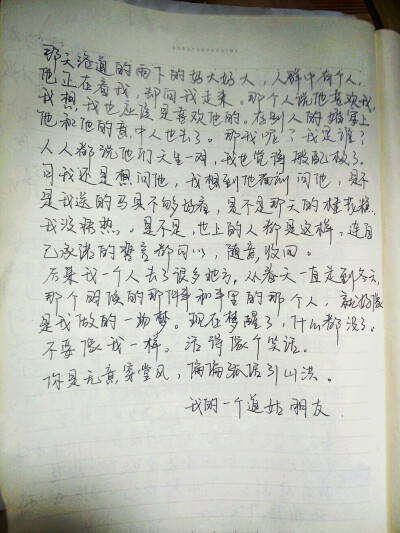 那天洛道的雨下的好大好大，人群中有个人，
他正在看我，却向我走来。那个人说他喜欢我，
我想，我也应该是喜欢他的。在别人的婚宴上
他和他的意中人也去了。那我呢？我是谁？
人人都说他们天生一对，我也觉得般配极了。
可我还是想问他，我想到他面前问他，是不
是我送的马具不够好看，是不是那天的桂花糕
我没捂热。是不是，世上的人都是这样，连自
己承诺的誓言都可以，随意收回。
后来我一个人去了很多地方，从春天一直走到冬天，
那个时候的那件事和手里的那个人，就好像
是我做的一场梦。现在梦醒了，什么都没了。
不要像我一样。活得像个笑话。
你是无意穿堂风，偏偏孤倨引山洪。
我的一个道姑朋友